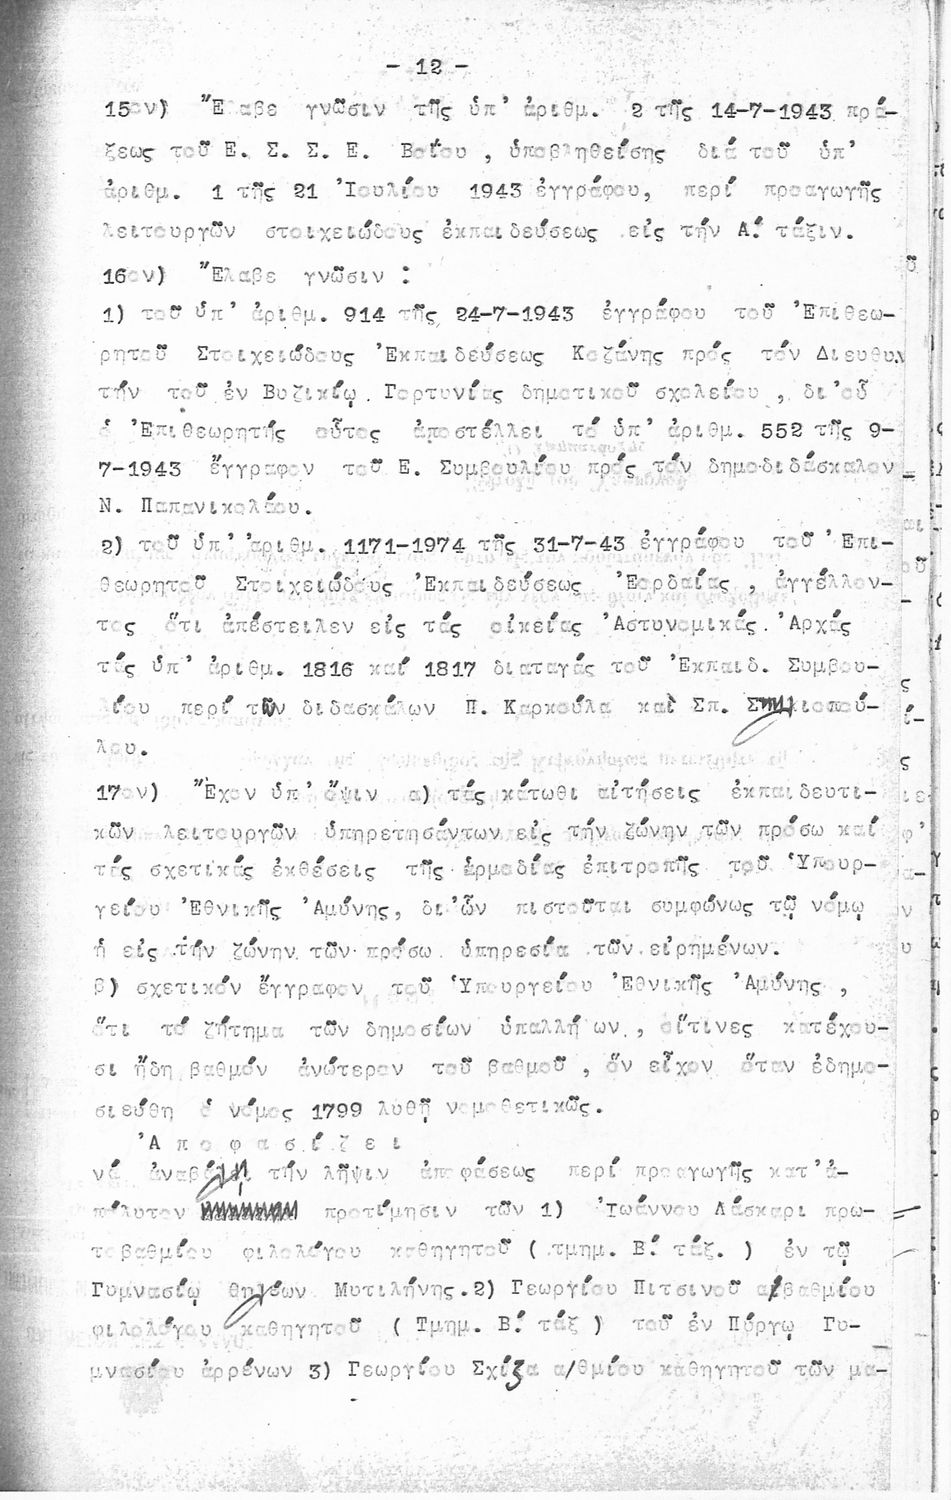 - 12 -
15ον) Ἔλαβε γνῶσιν τῆς ὑπ' ἀριθμ. 2 τῆς 14-7-1943 πρά-
ξεως τοῦ Ε. Σ. Σ. Ε. Βοΐου , ὑποβληθείσης διά τοῦ ὑπ'
ἀριθμ. 1 τῆς 21 Ἰουλίου 1943 ἐγγράφου, περί προαγωγῆς
λειτουργῶν στοιχειώδους ἐκπαιδεύσεως εἰς τήν Α΄ τάξιν.
16ον) Ἔλαβε γνῶσιν :
1) τοῦ ὑπ' ἀριθμ. 914 τῆς 24-7-1943 ἐγγράφου τοῦ Ἐπιθεω-
ρητοῦ Στοιχειώδους Ἐκπαιδεύσεως Κοζάνης πρός τόν Διευθυν
τήν τοῦ ἐν Βυζικίῳ Γορτυνίας δημοτικοῦ σχολείου , δι'οὗ
ὁ Ἐπιθεωρητής οὗτος ἀποστέλλει τό ὑπ' ἀριθμ. 552 τῆς 9-
7-1943 ἔγγραφον τοῦ Ε. Συμβουλίου πρός τόν δημοδιδάσκαλον
Ν. Παπανικολάου.
2) τοῦ ὑπ' ἀριθμ. 1171-1974 τῆς 31-7-43 ἐγγράφου τοῦ Ἐπι-
θεωρητοῦ Στοιχειώδους Ἐκπαιδεύσεως Ἐορδαίας , ἀγγέλλον-
τος ὅτι ἀπέστειλεν εἰς τάς οἰκείας Ἀστυνομικάς Ἀρχάς
τάς ὑπ' ἀριθμ. 1816 καί 1817 διαταγάς τοῦ Ἐκπαιδ. Συμβου-
λίου περί τῶν διδασκάλων Π. Καρκούλα καί Σπ.
λου.
17ον) Ἔχον ὑπ' ὄψιν α) τάς κάτωθι αἰτήσεις ἐκπαιδευτι-
κῶν λειτουργῶν ὑπηρετησάντων εἰς τήν ζώνην τῶν πρόσω καί
τάς σχετικάς ἐκθέσεις τῆς ἁρμοδίας ἐπιτροπῆς τοῦ Ὑπουρ-
γείου Ἐθνικῆς Ἀμύνης, δι'ὧν πιστοῦται συμφώνως τῷ νόμῳ
ἡ εἰς τήν ζώνην τῶν πρόσω ὑπηρεσία τῶν εἰρημένων.
β) σχετικόν ἔγγραφον τοῦ Ὑπουργείου Ἐθνικῆς Ἀμύνης ,
ὅτι τό ζήτημα τῶν δημοσίων ὑπαλλή ων , οἵτινες κατέχου-
σι ἤδη βαθμόν ἀνώτερον τοῦ βαθμοῦ , ὅν εἶχον ὅταν ἐδημο-
σιεύθη ὁ νόμος 1799 λυθῇ νομοθετικῶς.
Ἀ π ο φ α σ ί ζ ε ι
νά ἀναβάλῃ τήν λῆψιν ἀποφάσεως περί προαγωγῆς κατ'ἀ-
πόλυτον προτίμησιν τῶν 1) Ἰωάννου Λάσκαρι πρω-
τοβαθμίου φιλολόγου καθηγητοῦ ( τμημ. Β΄ τάξ. ) ἐν τῷ
Γυμνασίῳ θηλέων Μυτιλήνης. 2) Γεωργίου Πιτσινοῦ α/βαθμίου
φιλολόγου καθηγητοῦ ( Τμημ. Β΄ τάξ ) τοῦ ἐν Πύργῳ Γυ-
μνασίου ἀρρένων 3) Γεωργίου Σχίζα α/θμίου καθηγητοῦ τῶν μα-